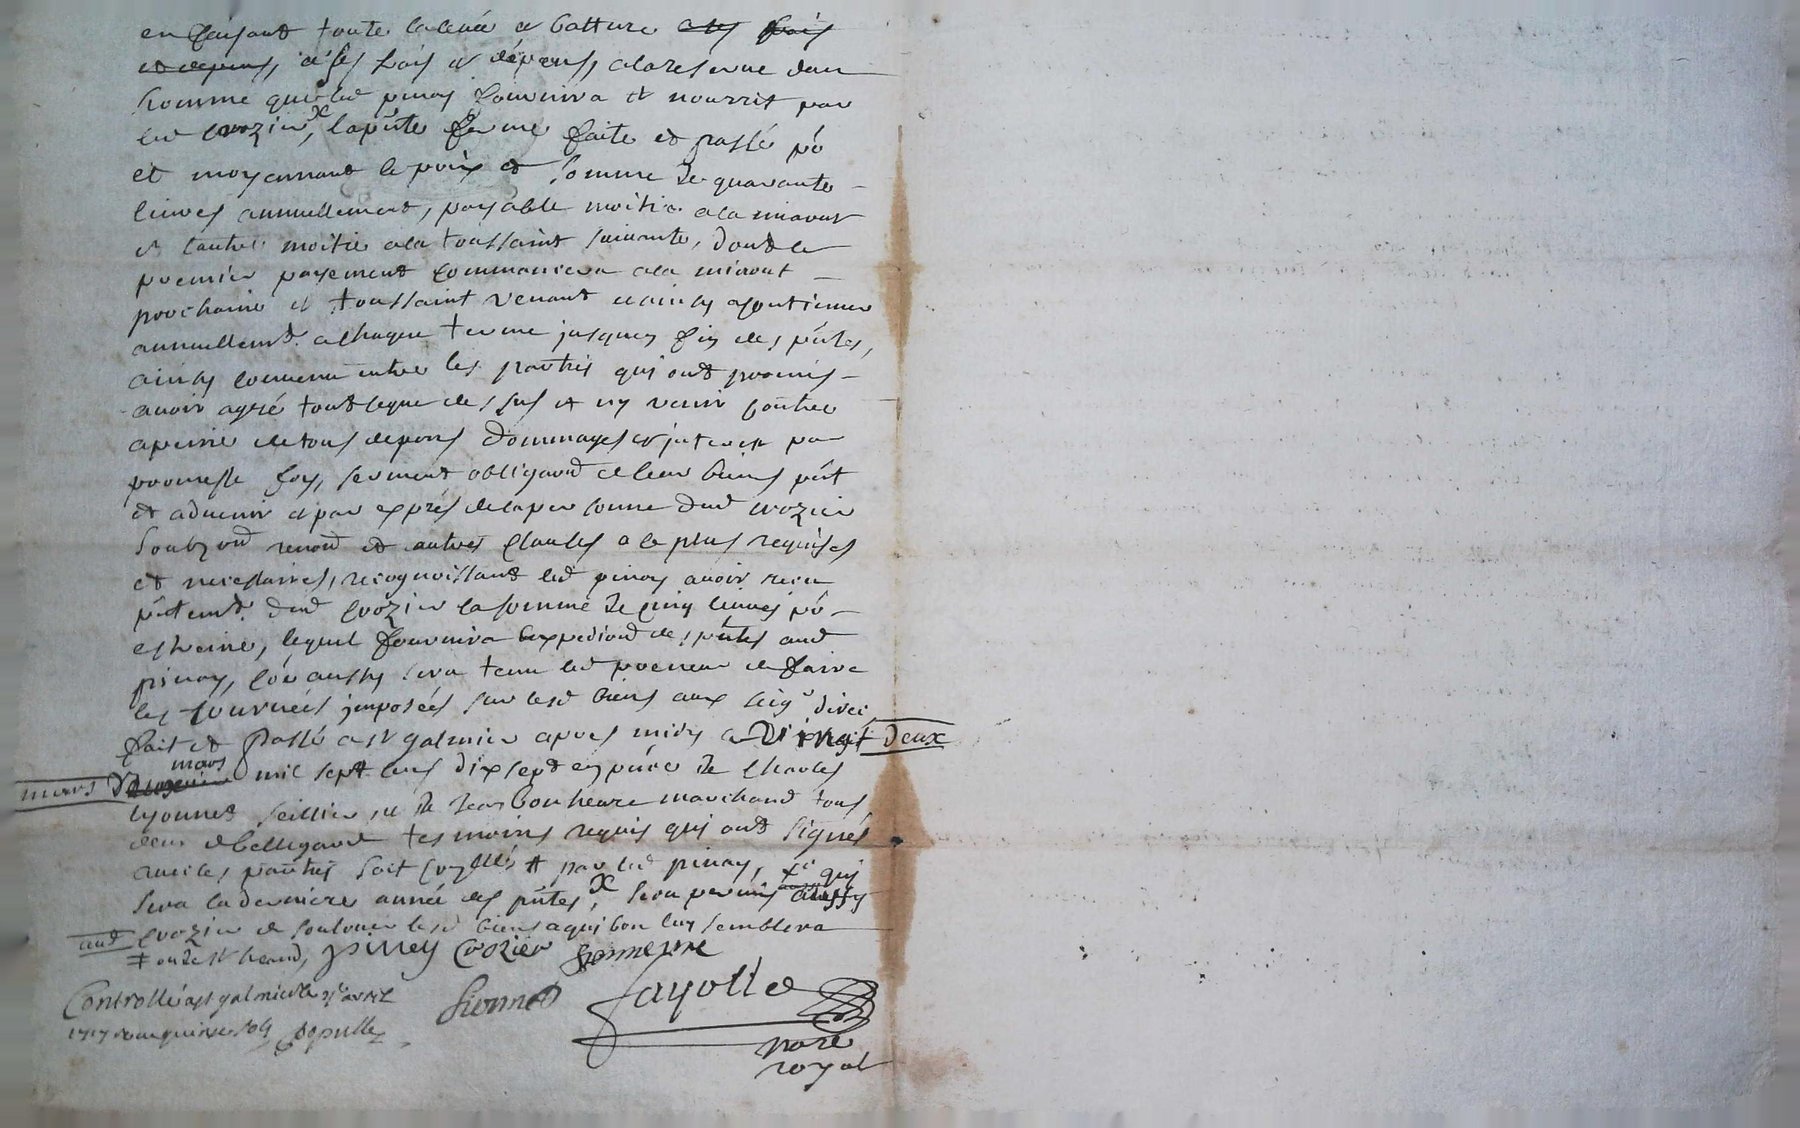 en faisant toute la levée et batture a ses frais
et depens, a ses frais et dépens, a la reserve dun
homme que led pinay fournira et nourrit par
led crozier, la pnte ferme faite et passé po
et moyennant le prix et somme de quarante
livres annuellement, payable moitié a la miaoust
et lautre moitié a la toussaint suivante, dont le
premier payement commancera a la miaoust
prochaine et toussaint venant et ainsy continuer
annuellemt a chaque terme jusques fin des pntes,
ainsy convenu entre les parties qui ont promis
avoir agreé tout ce que dessus et ny venir contre
a peine de tous depens dommages et interest par
promesse foy, serment obligaon de leur biens pnt
et advenir et par exprés de la personne dud crozier
soubzon renon et autres clauses a ce plus requises
et necessaires, recognoissant led pinay avoir receu
pntemt dud crozier la somme de cinq livres po
estreine, lequel fournira lexpedition des pntes aud
pinay, co aussy sera tenu led preneur de faire
les journées imposées sur lesd biens aux seigr direc
fait et passé a st galmier apres midy le vingt deux
mars
mars mil sept cens dix sept en pnce de Charles
lyonnet sellier, et de Jean bonheure marchand tous
deux de bellegarde tesmoins requis qui ont signés
avec les parties soit crozier et par led pinay, qui
sera la derniere année des pntes, sera permis aussy
aud crozier de soulouer lesd biens a qui bon luy semblera
piney Crozier bonneure
Controllé a st galmier le avril
1717 receu quinze sols
lionnet Fayolle
no.re
royal